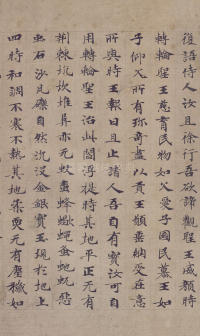 復語侍人汝且徐行吾欲諦觀聖王威顏時
轉輪聖王慈育民物如父愛子國民慕王如
子仰父所有珍奇盡以貢王願垂納受在意
所與時王報曰且止諸人吾自有寶汝可自
用轉輪聖王治此閻浮提時其地平正无有
荊棘坑坎堆阜亦无蚊虻蜂蠍蠅蚤虵蚖惡
虫石沙瓦礫自然沉沒金銀寶玉現於地上
四時和調不寒不熱其地柔耎无有塵穢如